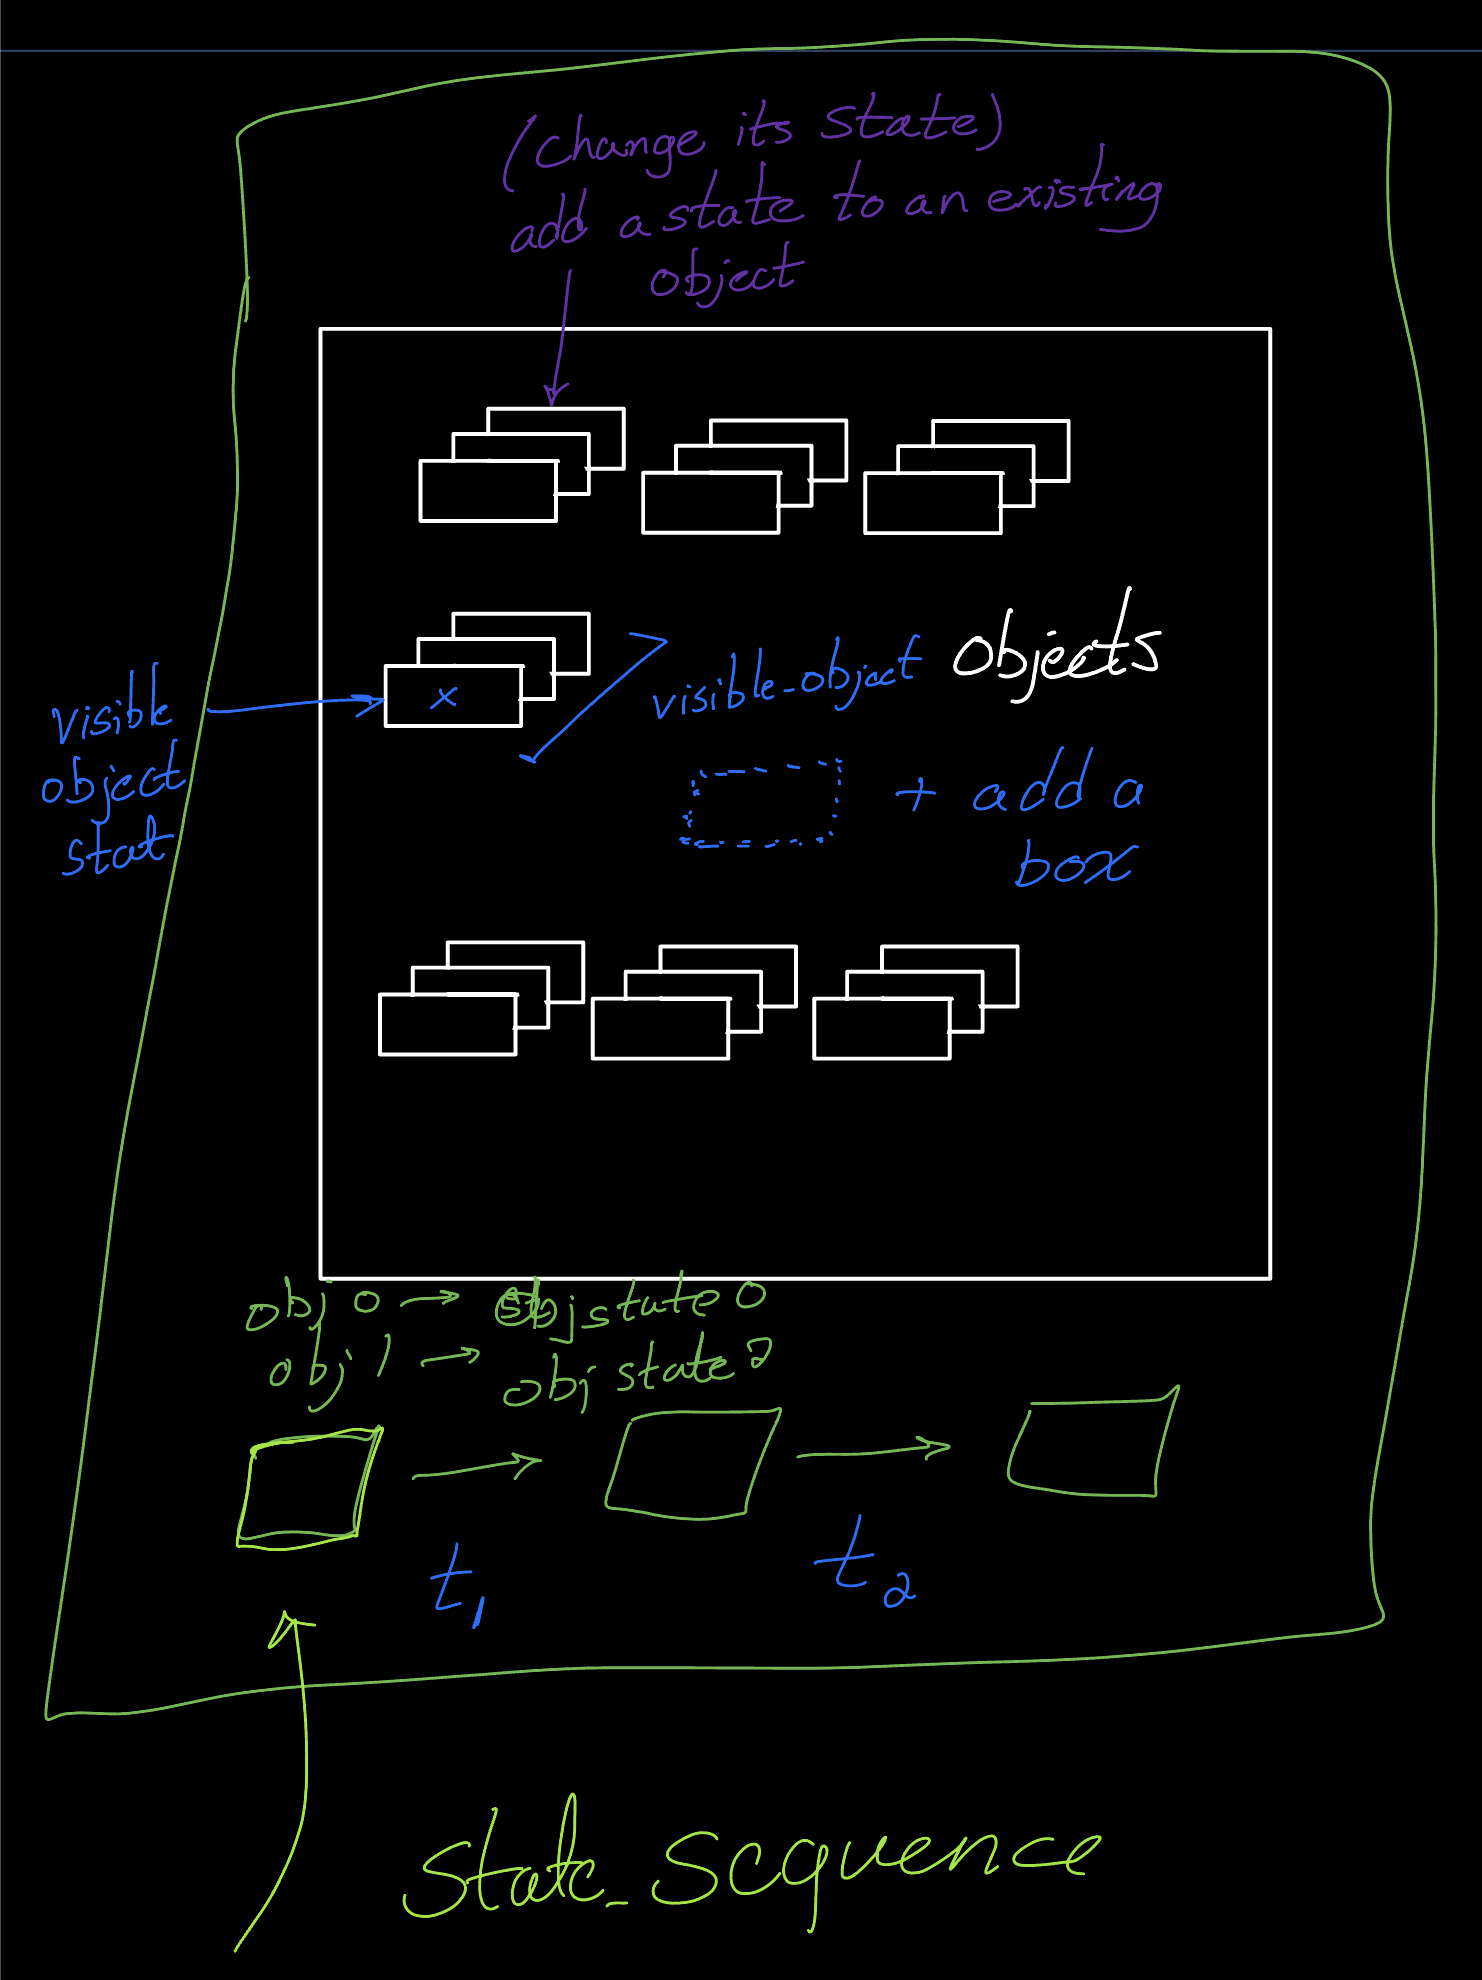 (change its state)
add a state to an existing
object
objects
visible-object
visible
object
stat
+ add a
box
obj 0 → objstate 0
obj 1 → obj state 2
t1
t2
State_Sequence